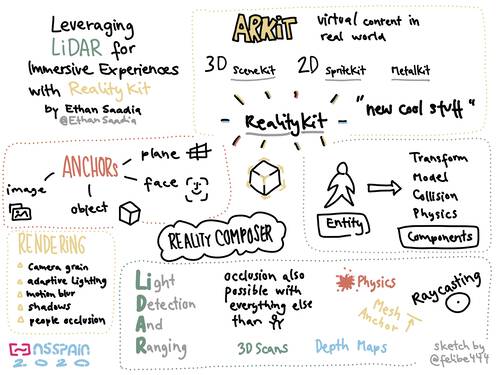 Leveraging
LiDAR for
Immersive Experiences
with RealityKit
by Ethan Saadia
@EthanSaadia
ARKIT
virtual content in
real world
3D SceneKit
2D SpriteKit
MetalKit
RealityKit
"new cool stuff"
ANCHORs
plane
face
image
object
Entity
Transform
Model
Collision
Physics
Components
REALITY COMPOSER
RENDERING
Camera grain
adaptive lighting
motion blur
shadows
people occlusion
NSSPAIN
2020
Light
Detection
And
Ranging
occlusion also
possible with
everything else
than
3D Scans
Physics
Mesh
Anchor
Depth Maps
Raycasting
sketch by
@felibe444